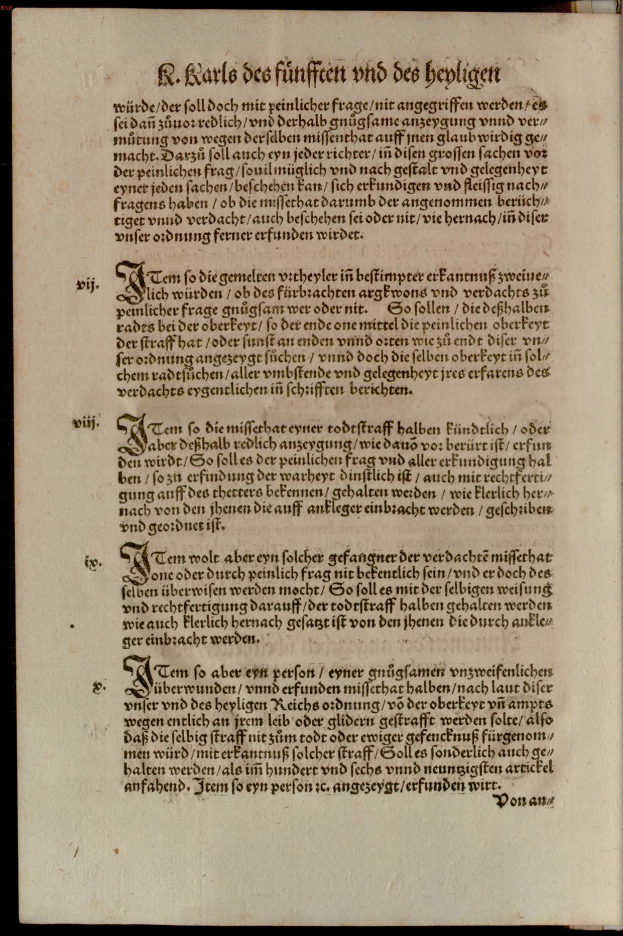 K. Karls des fünfften vnd des heyligen
würde/der soll doch mit peinlicher frage/nit angegriffen werden/es
sei dañ zůuor redlich/vnd derhalb gnůgsame anzeygung vnnd ver⸗
můtung von wegen derselben missenthat auff jnen glaubwirdig ge⸗
macht. Darzů soll auch eyn jeder richter/iñ disen grossen sachen vor
der peinlichen frag/souil müglich vnd nach gestalt vnd gelegenheyt
eyner jeden sachen/beschehen kan/sich erkundigen vnd fleissig nach⸗
fragens haben/ob die missethat darumb der angenommen berüch⸗
tiget vnnd verdacht/auch beschehen sei oder nit/wie hernach/iñ diser
vnser ordnung ferner erfunden wirdet.
vij. ITem so die gemelten vrtheyler iñ bestimpter erkantnuß zweiue⸗
lich würden/ob des fürbrachten argkwons vnd verdachts zů
peinlicher frage gnůgsam wer oder nit. So sollen/die deßhalben
radts bei der oberkeyt/so der ende one mittel die peinlichen oberkeyt
der straff hat/oder sunst an enden vnnd orten wie zů endt diser vn⸗
ser ordnung angezeygt sůchen/vnnd doch die selben oberkeyt iñ sol⸗
chem radtsůchen/aller vmbstende vnd gelegenheyt jres erfarens des
verdachts eygentlichen iñ schrifften berichten.
viij. ITem so die missethat eyner todtstraff halben kündtlich/oder
aber deßhalb redlich anzeygung/wie dauõ vor berürt ist/erfun
den wirdt/So soll es der peinlichen frag vnd aller erkundigung hal
ben/so zů erfindung der warheyt dinstlich ist/auch mit rechtferti⸗
gung auff des thetters bekennen/gehalten werden/wie klerlich her⸗
nach von den jhenen die auff ankleger einbracht werden/geschriben
vnd geordnet ist.
ix. ITem wolt aber eyn solcher gefangner der verdachtẽ missethat
one oder durch peinlich frag nit bekentlich sein/vnd er doch des
selben überwisen werden mocht/So soll es mit der selbigen weisung
vnd rechtfertigung darauff/der todtstraff halben gehalten werden
wie auch klerlich hernach gesatzt ist von den jhenen die durch ankle⸗
ger einbracht werden.
x. ITem so aber eyn person/eyner gnůgsamen vnzweifenlichen
überwunden/vnnd erfunden missethat halben/nach laut diser
vnser vnd des heyligen Reichs ordnung/võ der oberkeyt vñ ampts
wegen entlich an jrem leib oder glidern gestrafft werden solte/also
daß die selbig straff nit zům todt oder ewiger gefencknuß fürgenom⸗
men würd/mit erkantnuß solcher straff/Soll es sonderlich auch ge⸗
halten werden/als im̃ hundert vnd sechs vnnd neuntzigsten artickel
anfahend. Item so eyn person ꝛc. angezeygt/erfunden wirt.
Von an⸗